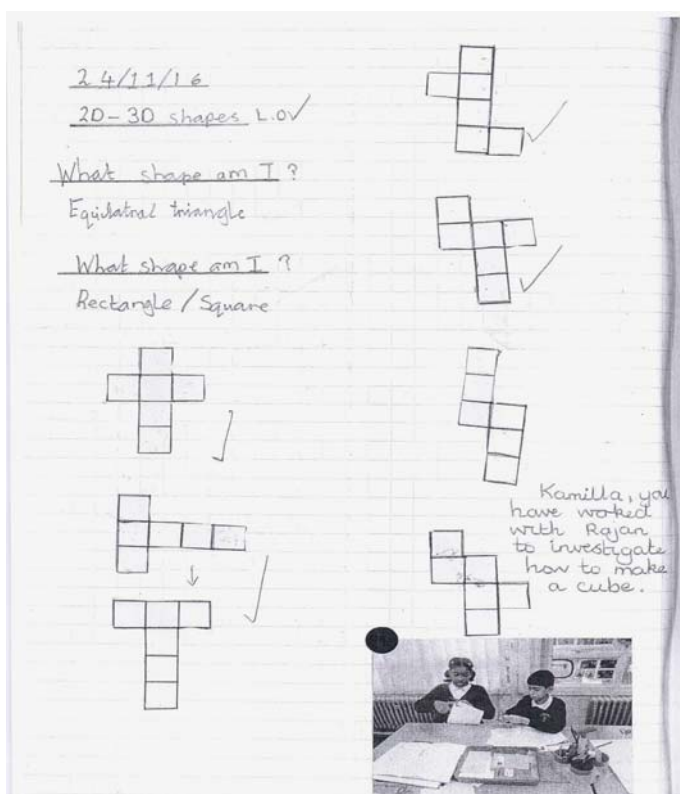 24/11/16
2D-3D shapes L.O✓
What shape am I?
Equilatral triangle
What shape am I?
Rectangle / Square
Kamilla, you
have worked
with Rajan
to investigate
how to make
a cube.